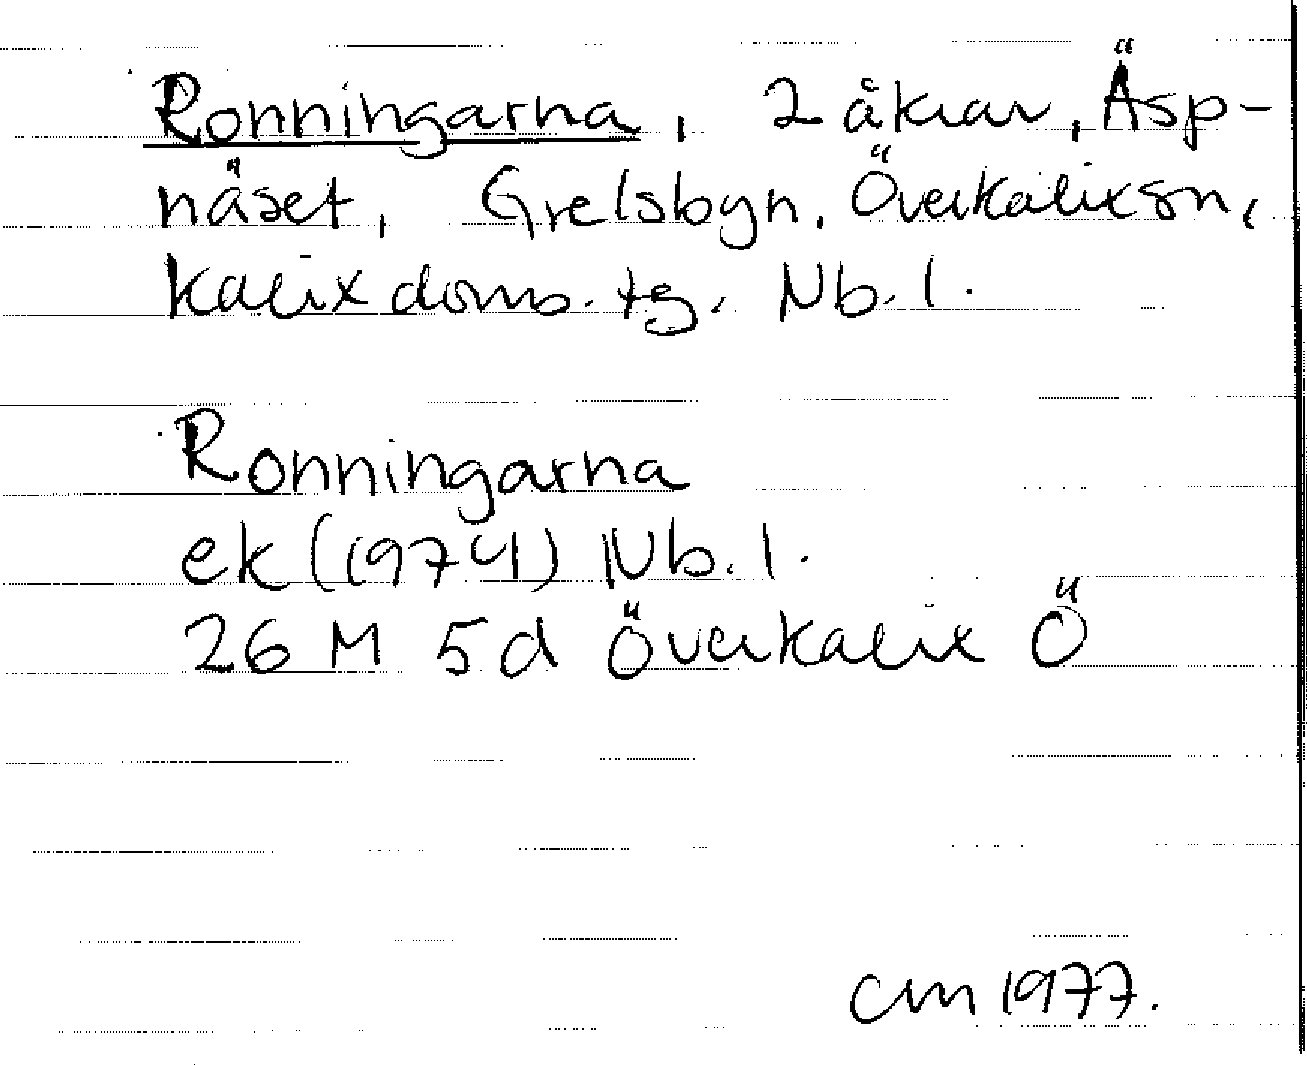 Ronningarna, 2 åkrar, Äsp-
näset, Grelsbyn, Överkalix sn,
Kalix doms. tg. Nb. l.
Ronningarna
ek (1974) Nb. l.
26 M 5d Överkalix Ö
CM 1977.